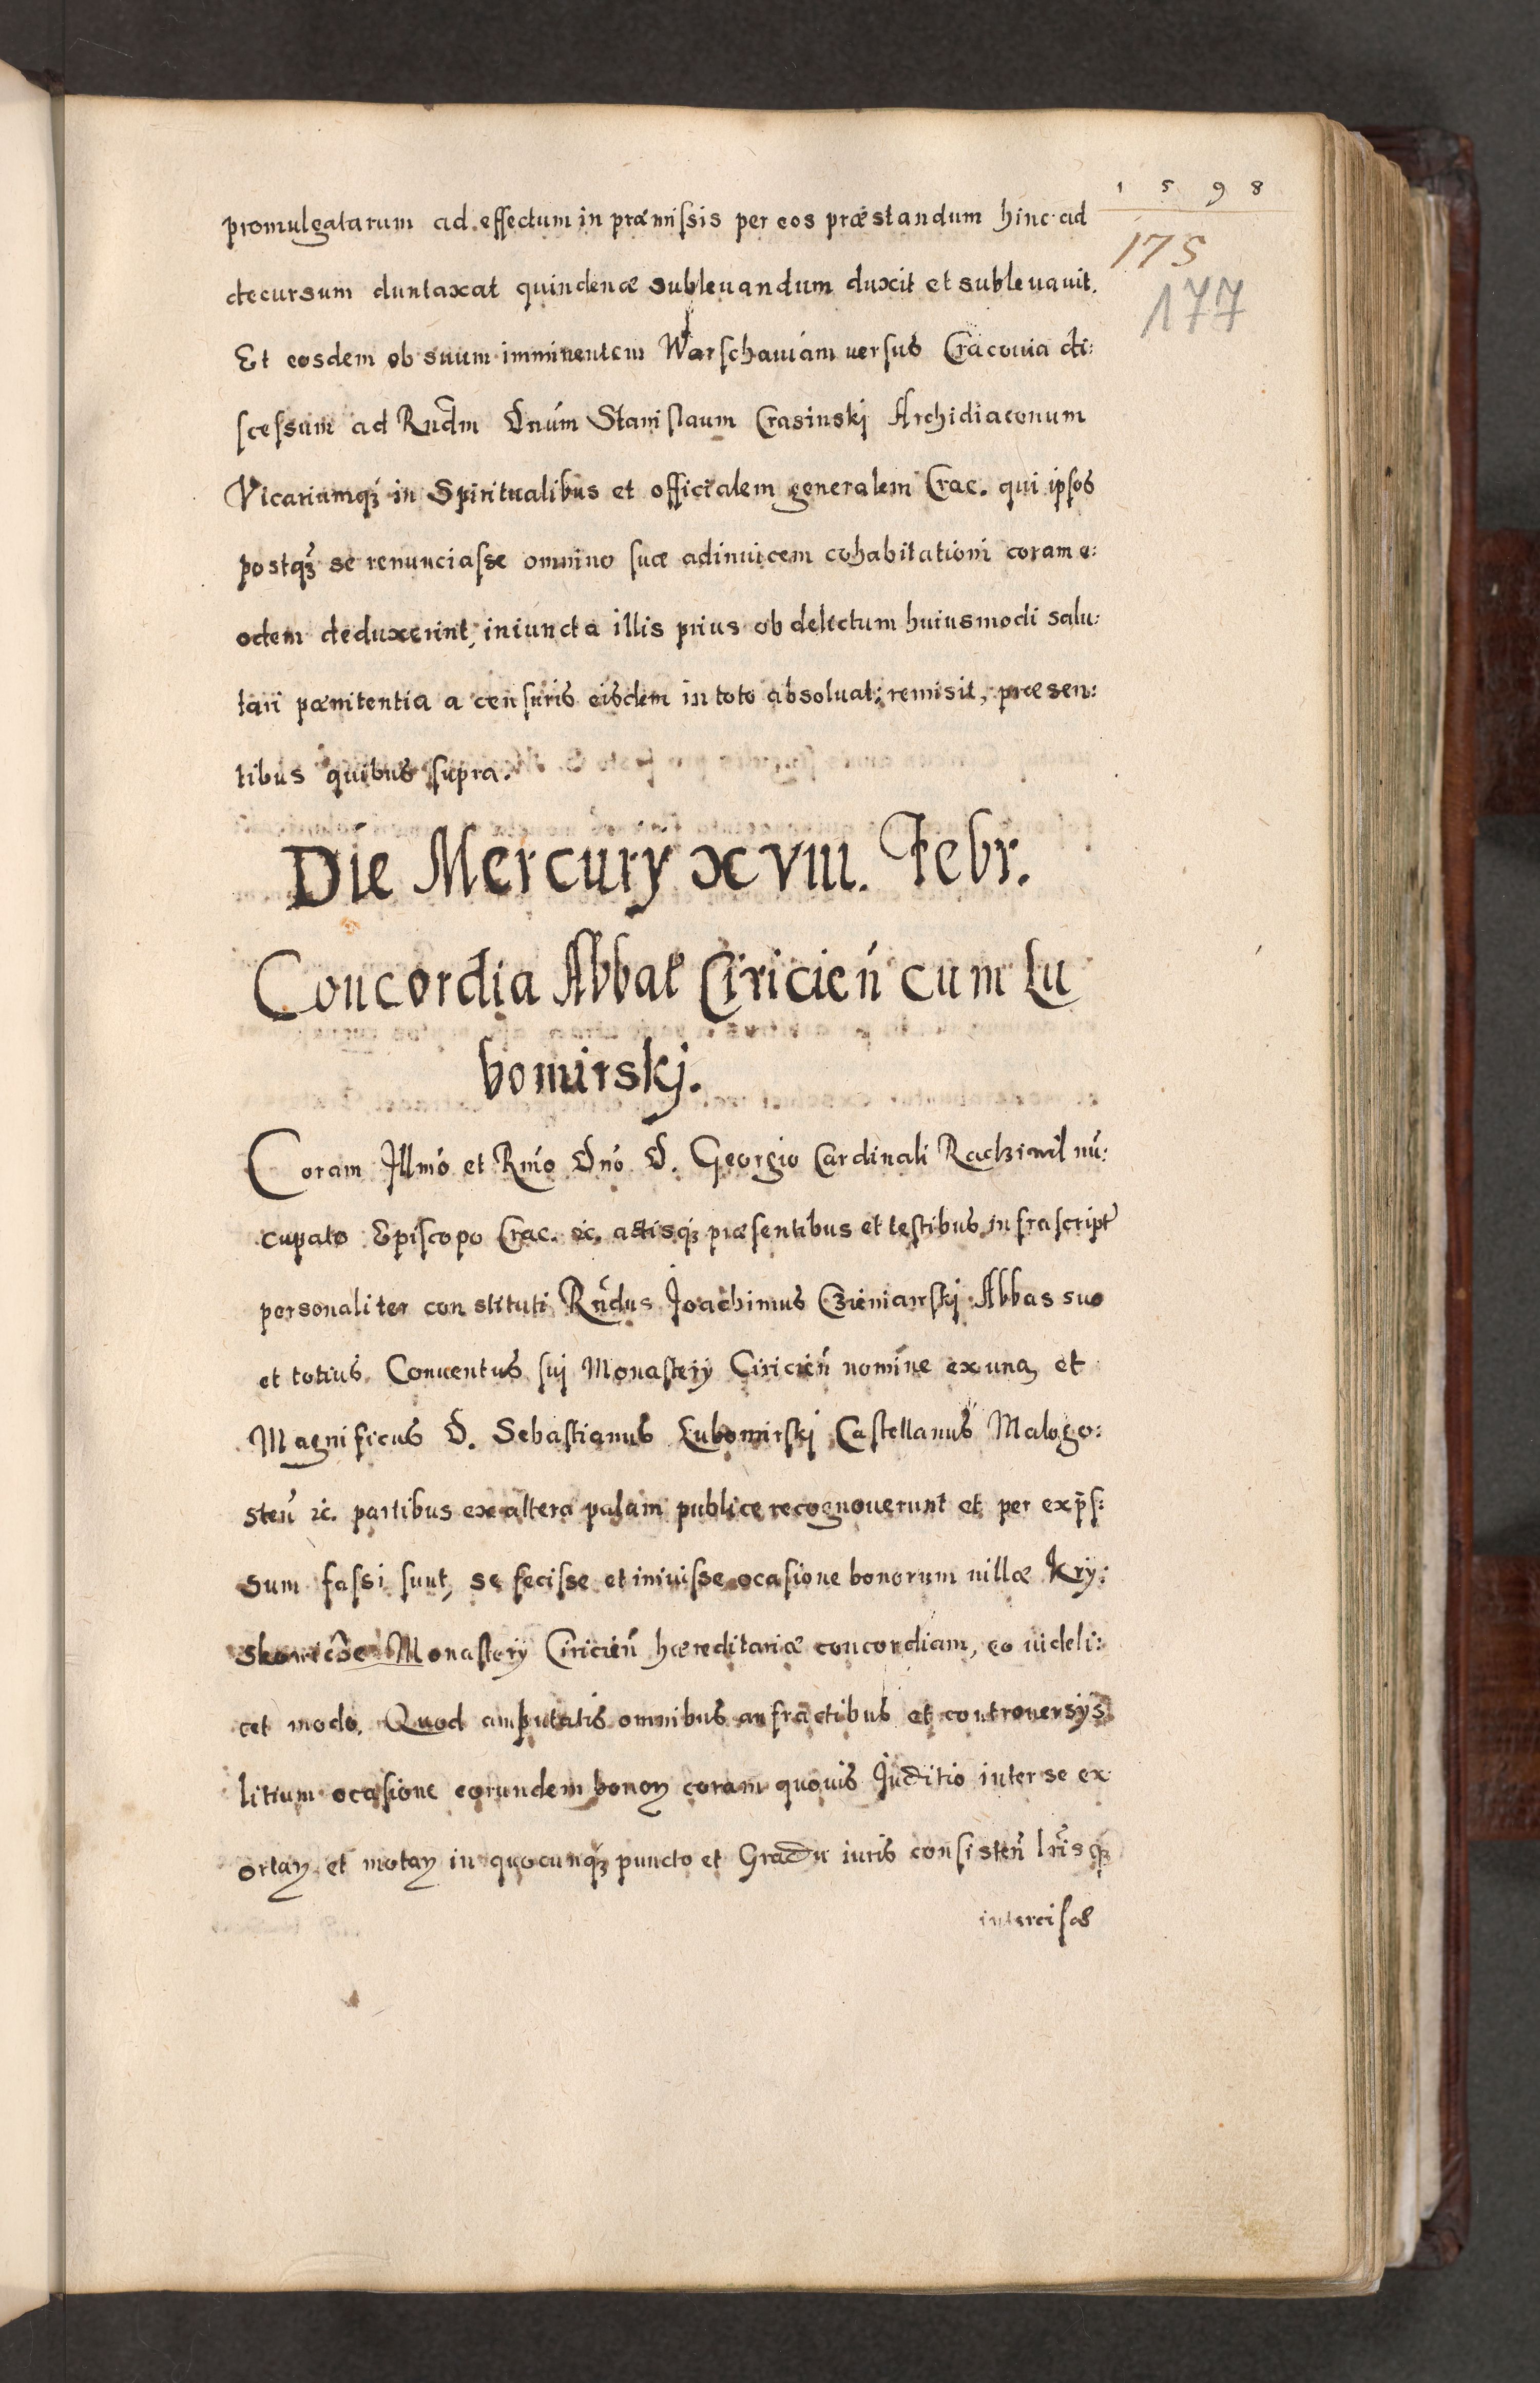 1598
175
177
promulgatarum ad effectum in præmissis per eos præstandum hinc ad
decursum duntaxat quindenæ subleuandum duxit et subleuauit.
Et eosdem ob suum imminentem Warschauiam uersus Cracouia di:
scessum ad Rndm Dnum Stanislaum Crasinskj Archidiaconum
Vicariumq3 in Spiritualibus et officialem generalem Crac. qui ipsos
postq3 se renunciasse omnino suæ adinuicem cohabitationi coram e:
odem deduxerint, iniuncta illis prius ob delictum huiusmodi salu:
tari pænitentia a censuris eisdem in toto absoluat: remisit, præsen:
tibus quibus supra.
Die Mercury XVIII. Febr.
Concordia Abbat Ciricien cum Lu
bomirskj.
Coram Illmo et Rmo Dno D. Georgio Cardinali Radziwil nu:
cupato Episcopo Crac. &c. actisq3 præsentibus et testibus infrascript
personaliter constituti Rndus Joachimus Czieniawskj Abbas suo
et totius Conuentus sui Monastery Ciricien nomine ex una, et
Magnificus D. Sebastianus Lubomirskj Castellanus Malogo:
sten &c. partibus ex altera palam publice recognouerunt et per exps:
sum fassi sunt, se fecisse et iniuisse ocasione bonorum uillæ Kry:
skowice Monastery Ciricien hæreditariæ concordiam, eo uideli:
cet modo. Quod amputatis omnibus anfractibus et controuersys
litium ocasione eorundem bonoꝝ coram quouis Juditio inter se ex
ortaꝝ et motaꝝ in quocunq3 puncto et Gradu iuris consisten lrisq3
intercisas